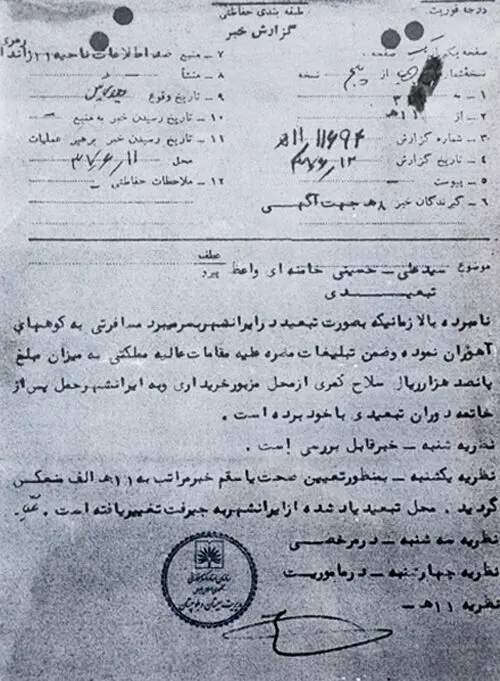 درجه فوریت
طبقه بندی حفاظتی
گزارش خبر
صفحه یک از صفحه
نسخه شماره از پنج نسخه
۱ – به ۳
۲ – از ۱۱ هـ
۳ – شماره گزارش ۱۱۶۹۴ / ۱۱ هـ
۴ – تاریخ گزارش ۳۷/۶/۱۲
۵ – پیوست –
۶ – گیرندگان خبر ۸ هـ جهت آگهی
۷ – منبع ضد اطلاعات ناحیه ۱۱ ژاند
۸ – منشأ
۹ – تاریخ وقوع
۱۰ – تاریخ رسیدن خبر به منبع –
۱۱ – تاریخ رسیدن خبر برهبر عملیات
محل ۳۷/۶/۱۱
۱۲ – ملاحظات حفاظتی –
موضوع سید علی – حسینی خامنه ای واعظ
عطف
پیرو
تبعیدی
نامبرده بالا زمانیکه بصورت تبعید در ایرانشهر بسر میبرد مسافرتی به کوههای
آهوران نموده وضمن تبلیغات مضره علیه مقامات عالیه مملکتی به میزان مبلغ
پانصد هزار ریال سلاح کمری از محل مزبور خریداری وبه ایرانشهر حمل پس از
خاتمه دوران تبعیدی با خود برده است .
نظریه شنبه – خبر قابل بررسی است .
نظریه یکشنبه – بمنظور تعیین صحت یا سقم خبر مراتب به ۱۱ هـ الف منعکس
گردید . محل تبعید یاد شده از ایرانشهر به جیرفت تغییر یافته است .
نظریه سه شنبه – در مرخصی
نظریه چهارشنبه – در ماموریت
نظریه ۱۱ هـ –